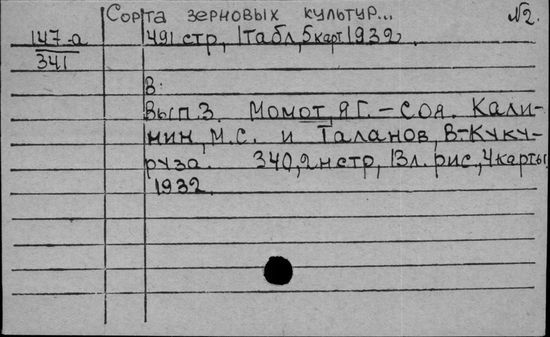 Сорта зерновых культур... №2.
147-а 491 стр, 1 табл, 5 карт 1932.
341
В:
Вып.3. Момот, Я Г. – Соя. Кали-
нин, М.С. и Таланов, В – Куку-
руза. 340, 2н стр, 13 л. рис, 4 карты,
1932.